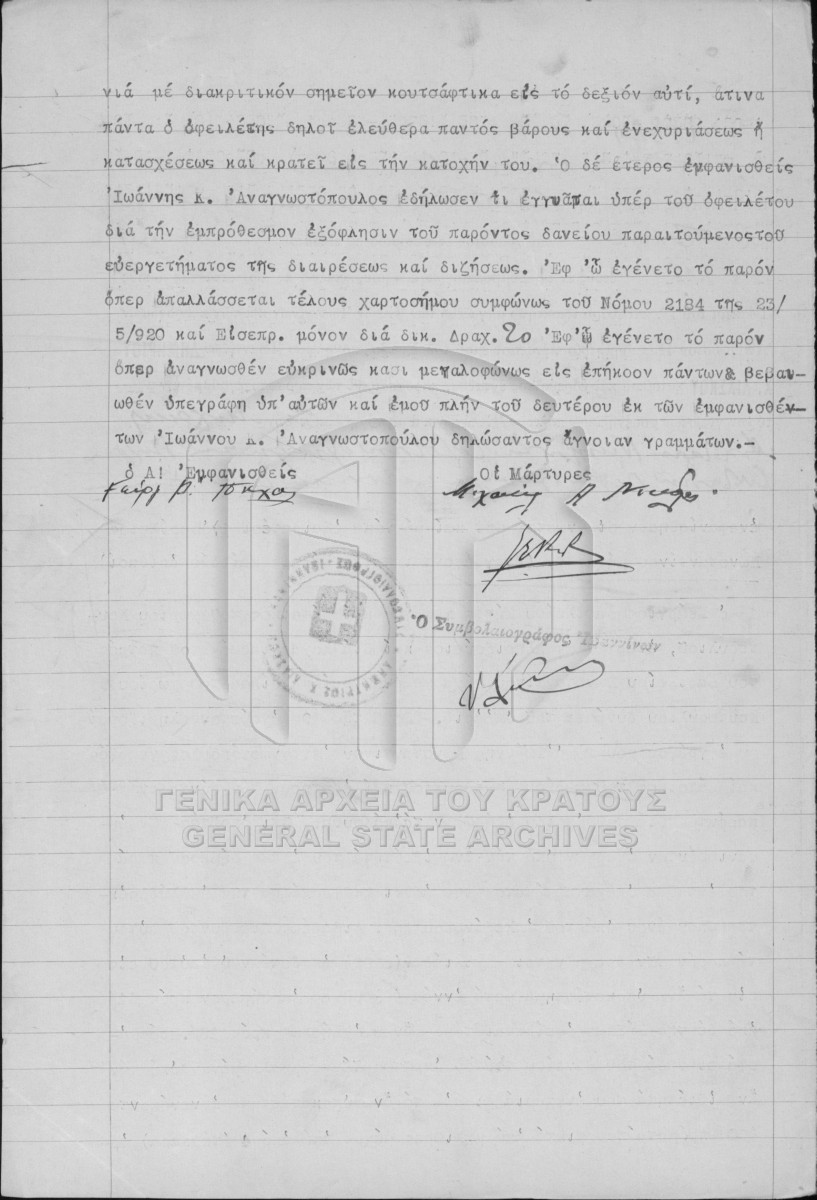 νιά μέ διακριτικόν σημεῖον κουτσάφτικα εἰς τό δεξιόν αὐτί, ἅτινα
πάντα ὁ ὀφειλέτης δηλοῖ ἐλεύθερα παντός βάρους καί ἐνεχυριάσεως ἤ
κατασχέσεως καί κρατεῖ εἰς τήν κατοχήν του. Ὁ δέ ἕτερος ἐμφανισθείς
Ἰωάννης Κ. Ἀναγνωστόπουλος ἐδήλωσεν ὅτι ἐγγυᾶται ὑπέρ τοῦ ὀφειλέτου
διά τήν ἐμπρόθεσμον ἐξόφλησιν τοῦ παρόντος δανείου παραιτούμενοςτοῦ
εὐεργετήματος τῆς διαιρέσεως καί διζήσεως. Ἐφ ᾧ ἐγένετο τό παρόν
ὅπερ ἀπαλλάσσεται τέλους χαρτοσήμου συμφώνως τοῦ Νόμου 2184 τῆς 23/
5/920 καί Εἰσεπρ. μόνον διά δικ. Δραχ. 20 Ἐφ'ᾧ ἐγένετο τό παρόν
ὅπερ ἀναγνωσθέν εὐκρινῶς κασι μεγαλοφώνως εἰς ἐπήκοον πάντων& βεβαι-
ωθέν ὑπεγράφη ὑπ'αὐτῶν καί ἐμοῦ πλήν τοῦ δευτέρου ἐκ τῶν ἐμφανισθέν-
των Ἰωάννου Κ. Ἀναγνωστοπούλου δηλώσαντος ἄγνοιαν γραμμάτων.-
ὁ Α! Ἐμφανισθείς
Οἱ Μάρτυρες
Ὁ Συμβολαιογράφος Ἰωαννίνων
ΓΕΝΙΚΑ ΑΡΧΕΙΑ ΤΟΥ ΚΡΑΤΟΥΣ
GENERAL STATE ARCHIVES